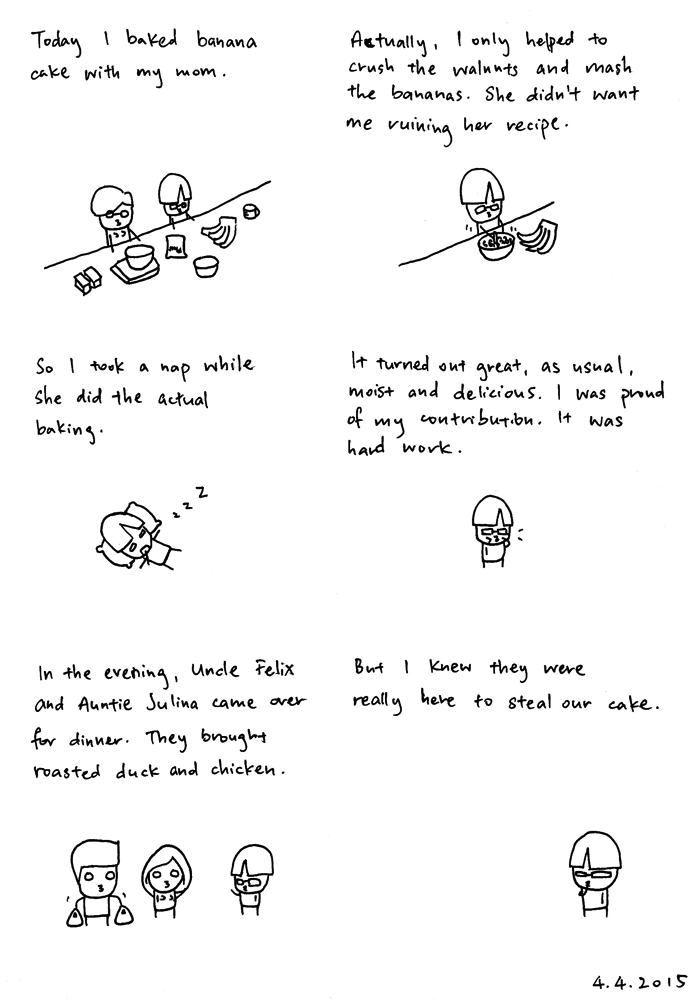 Today I baked banana
cake with my mom.
Actually, I only helped to
crush the walnuts and mash
the bananas. She didn't want
me ruining her recipe.
So I took a nap while
she did the actual
baking.
z z z
It turned out great, as usual,
moist and delicious. I was proud
of my contribution. It was
hard work.
In the evening, Uncle Felix
and Auntie Julina came over
for dinner. They brought
roasted duck and chicken.
But I knew they were
really here to steal our cake.
4.4.2015